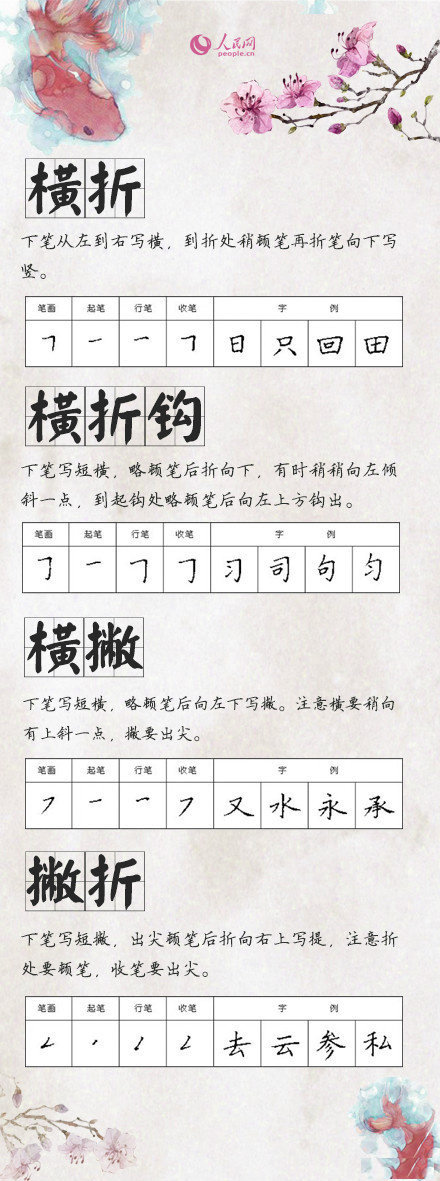 人民网
people.cn
横折
下笔从左到右写横，到折处稍顿笔再折笔向下写
竖。
笔画 起笔 行笔 收笔 字 例
㇕ 一 一 ㇕ 日 只 回 田
横折钩
下笔写短横，略顿笔后折向下，有时稍稍向左倾
斜一点，到起钩处略顿笔后向左上方钩出。
笔画 起笔 行笔 收笔 字 例
㇆ 一 ㇕ ㇆ 习 司 句 匀
横撇
下笔写短横，略顿笔后向左下写撇。注意横要稍向
有上斜一点，撇要出尖。
笔画 起笔 行笔 收笔 字 例
㇇ 一 一 ㇇ 又 水 永 承
撇折
下笔写短撇，出尖顿笔后折向右上写提，注意折
处要顿笔，收笔要出尖。
笔画 起笔 行笔 收笔 字 例
㇜ 丶 ㇓ ㇜ 去 云 参 私